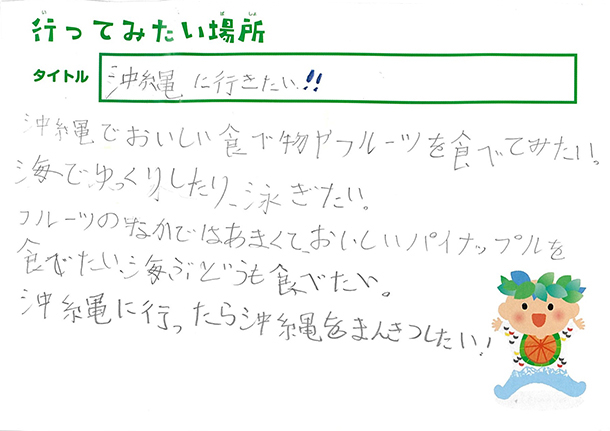 行ってみたい場所
タイトル 沖縄に行きたい!!
沖縄でおいしい食べ物やフルーツを食べてみたい。
海でゆっくりしたり、泳ぎたい。
フルーツのなかではあまくて、おいしいパイナップルを
食べたい、海ぶどうも食べたい。
沖縄に行ったら沖縄をまんきつしたい!